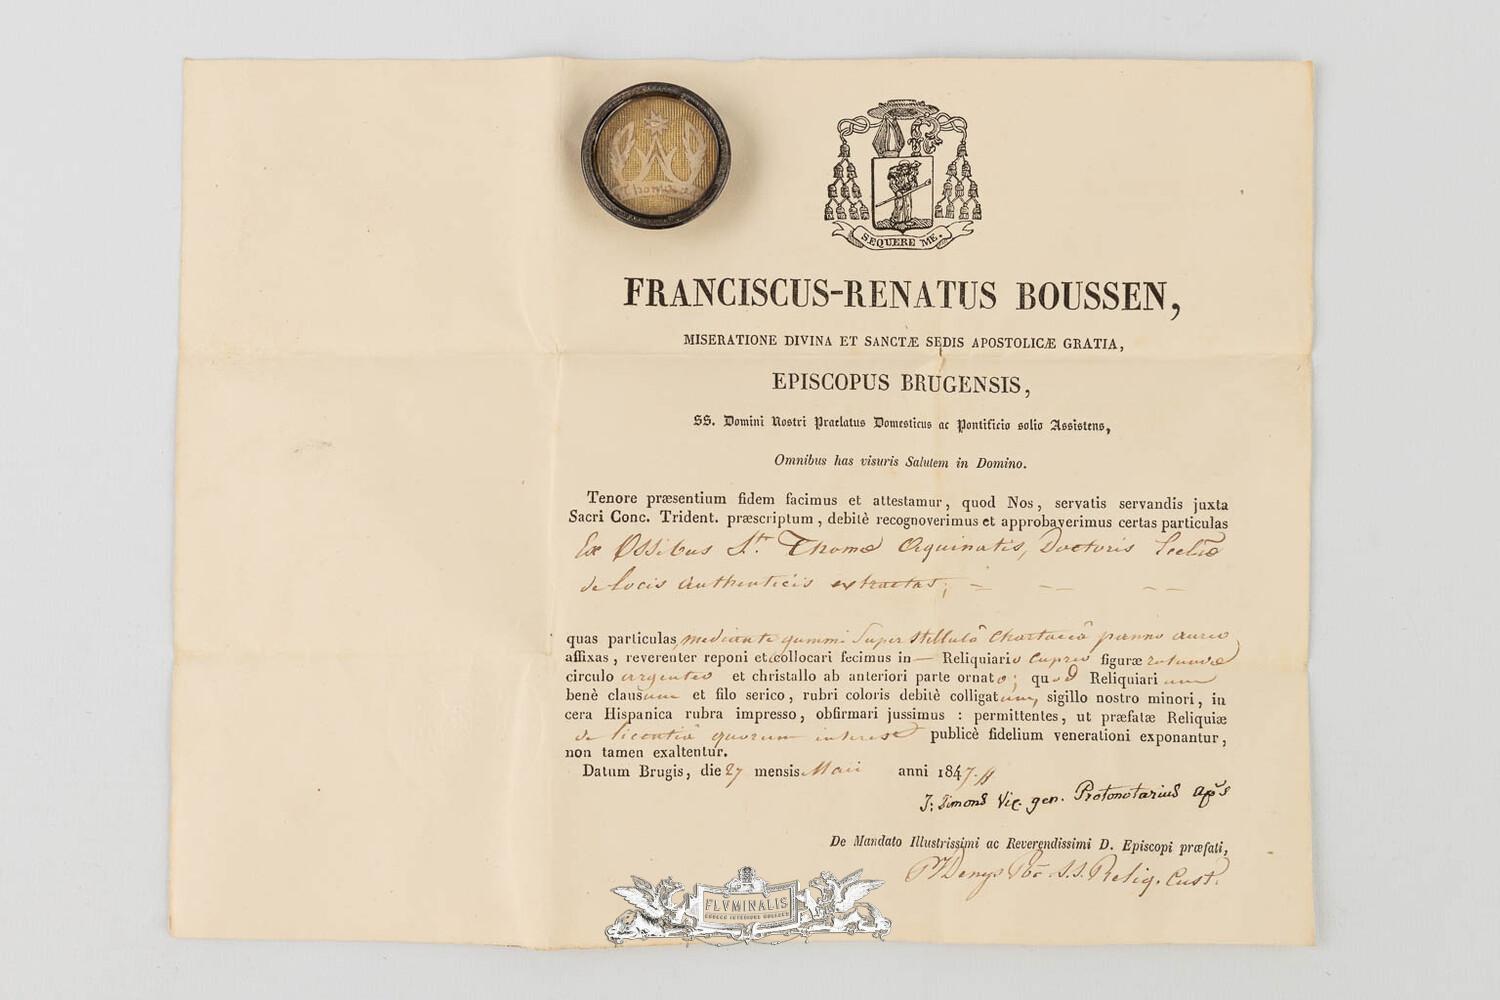 Thomæ
SEQUERE ME.
FRANCISCUS-RENATUS BOUSSEN,
MISERATIONE DIVINA ET SANCTÆ SEDIS APOSTOLICÆ GRATIA,
EPISCOPUS BRUGENSIS,
SS. Domini Nostri Praelatus Domesticus ac Pontificio solio Assistens,
Omnibus has visuris Salutem in Domino.
Tenore præsentium fidem facimus et attestamur, quod Nos, servatis servandis juxta
Sacri Conc. Trident. præscriptum, debitè recognoverimus et approbaverimus certas particulas
Ex Ossibus Sti. Thomæ Aquinatis, Doctoris Eccliæ
de locis authenticis extractas;
quas particulas mediante gummi super stellulâ chartaceâ panno aureo
affixas, reverenter reponi et collocari fecimus in — Reliquiario cupreo figuræ rotundæ
circulo argenteo et christallo ab anteriori parte ornato; quod Reliquiarium
benè clausum et filo serico, rubri coloris debitè colligatum, sigillo nostro minori, in
cera Hispanica rubra impresso, obfirmari jussimus : permittentes, ut præfatæ Reliquiæ
de licentiâ quorum interest publicè fidelium venerationi exponantur,
non tamen exaltentur.
Datum Brugis, die 27 mensis Maii anni 1847.
J: Simons Vic. gen. Protonotarius Aplus
De Mandato Illustrissimi ac Reverendissimi D. Episcopi præfati,
Denys Pbr. SS. Reliq. Cust.
FLVMINALIS